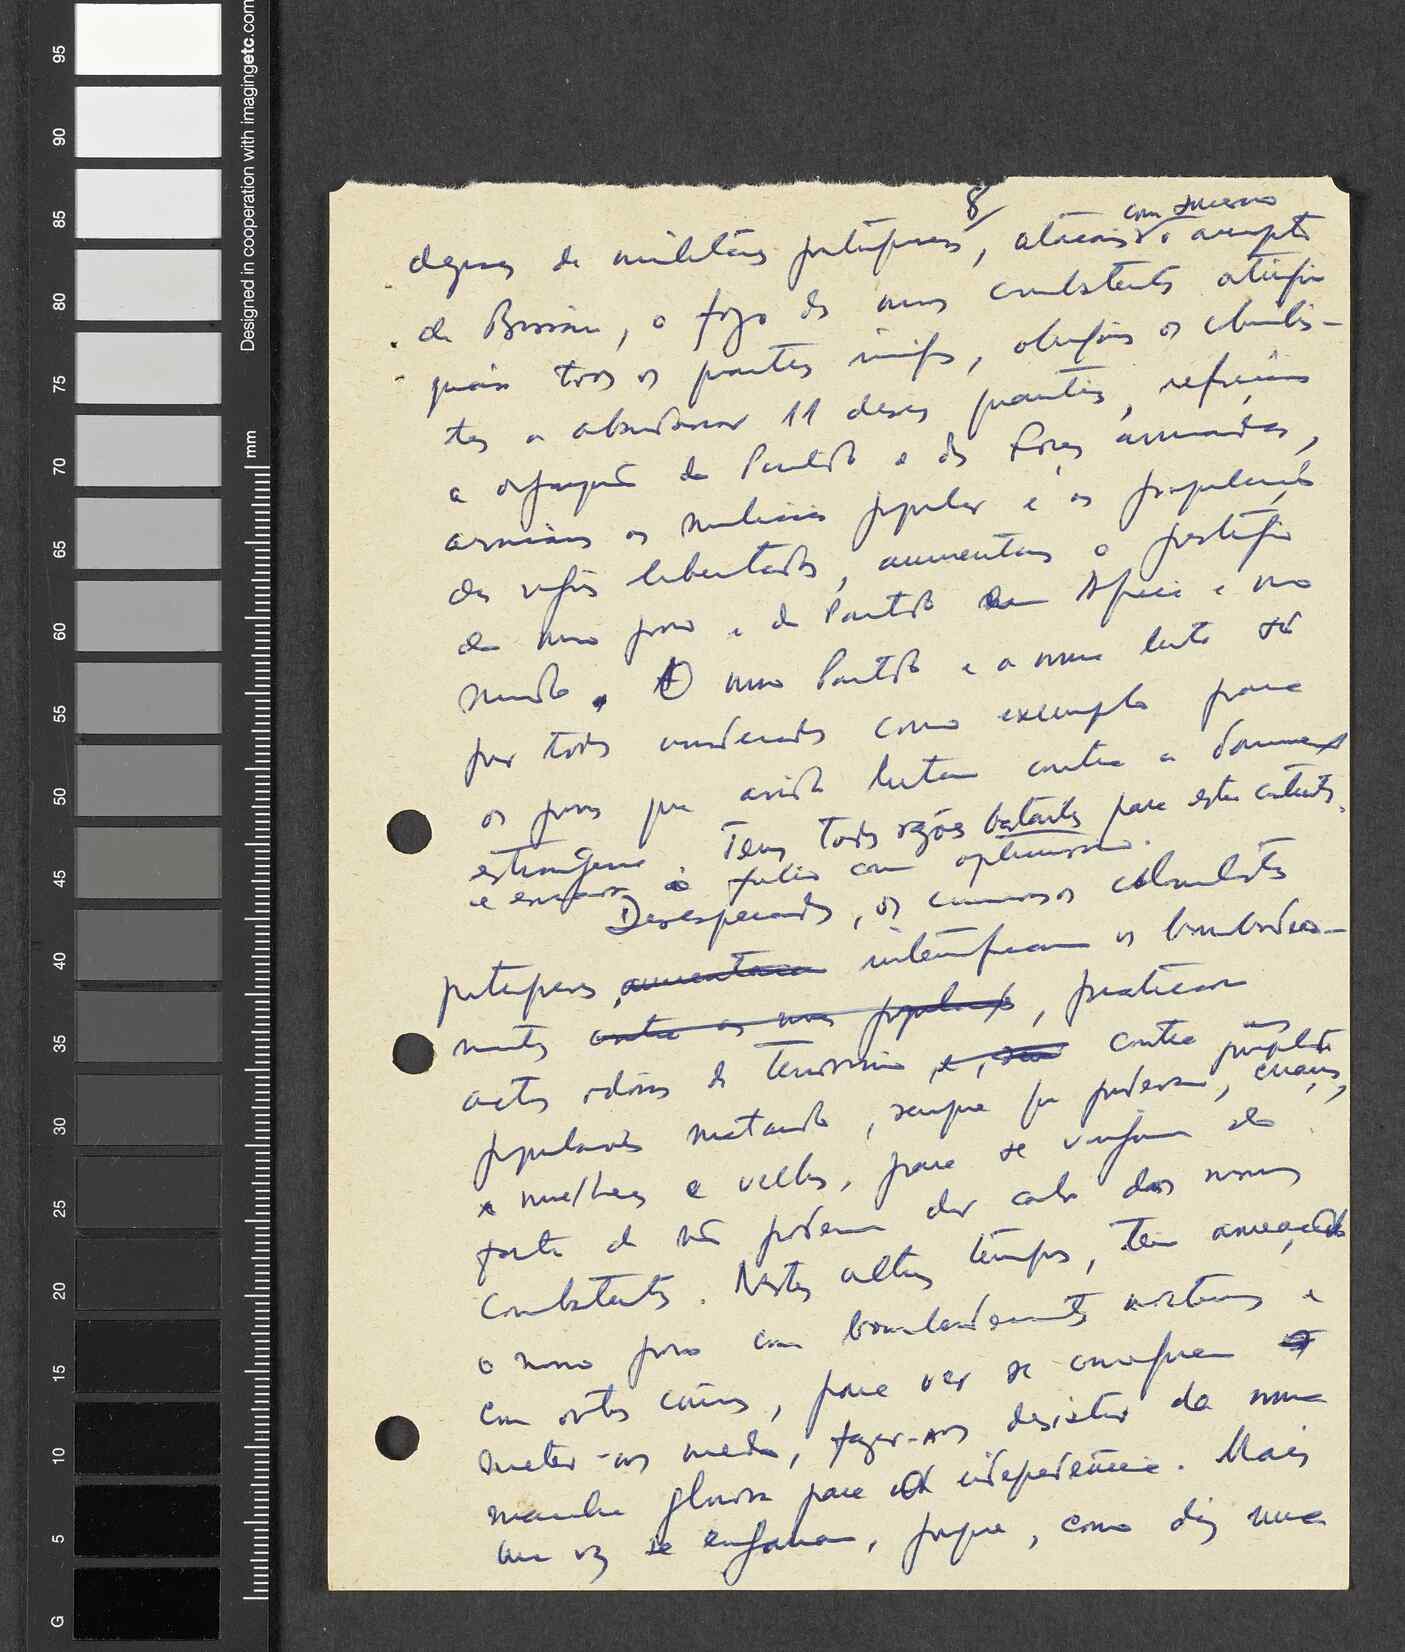 95
90
85
80
75
70
65
60
55
50
45
40
35
30
25
20
15
10
5
G
Designed in cooperation with imagingetc.com
mm
8
com sucesso
de militares portugueses, o aeroporto
de Bissau, o fogo dos combatentes
todos os quarteis inimigos, os colonialis-
tas a abandonar 11 desses quarteis,
a do Partido e das Forças armadas,
armámos as milicias popular e as populações
das regiões libertadas, o prestígio
do nosso povo e do Partido em Africa e no
mundo. O nosso Partido e a nossa luta são
por todos considerados como exemplo para
os povos que ainda lutam contra a
estrangeira. Temos todos razões bastantes para estar contentes,
e encarar o futuro com optimismo.
Desesperados, os criminosos colonialistas
portugueses aumentaram intensificam os bombardea-
mentos contra as nossas populações, praticam
actos odiosos de terrorismo contra as nossas
populações matando, sempre que puderam, crianças,
e mulheres e velhos, para se vingarem do
facto de não poderem dar cabo dos nossos
combatentes. Nestes ultimos tempos, têm ameaçado
o nosso povo com bombardeamentos e
com outros crimes, para ver se conseguem
meter-nos medo, fazer-nos desistir da nossa
marcha gloriosa para a independência. Mais
uma vez se enganam, porque, como diz uma